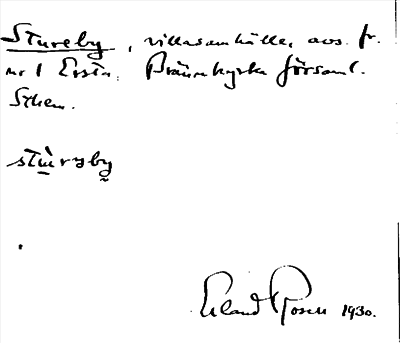 Stureby, villasamhälle, avs. fr.
nr 1 Ersta, Brännkyrka församl.
Sthlm.
stùrəby
Erland Rosell 1930.